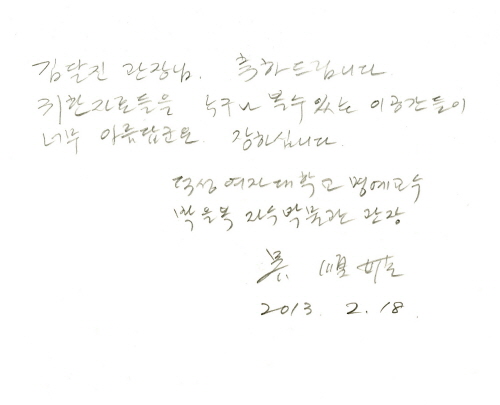 김달진 관장님. 축하드립니다.
귀한자료들을 누구나 볼수있는 이공간들이
너무 아름답군요. 장하십니다.
덕성여자대학교 명예교수
박을복 자수박물관 관장
吳 順姬
2013. 2. 18.